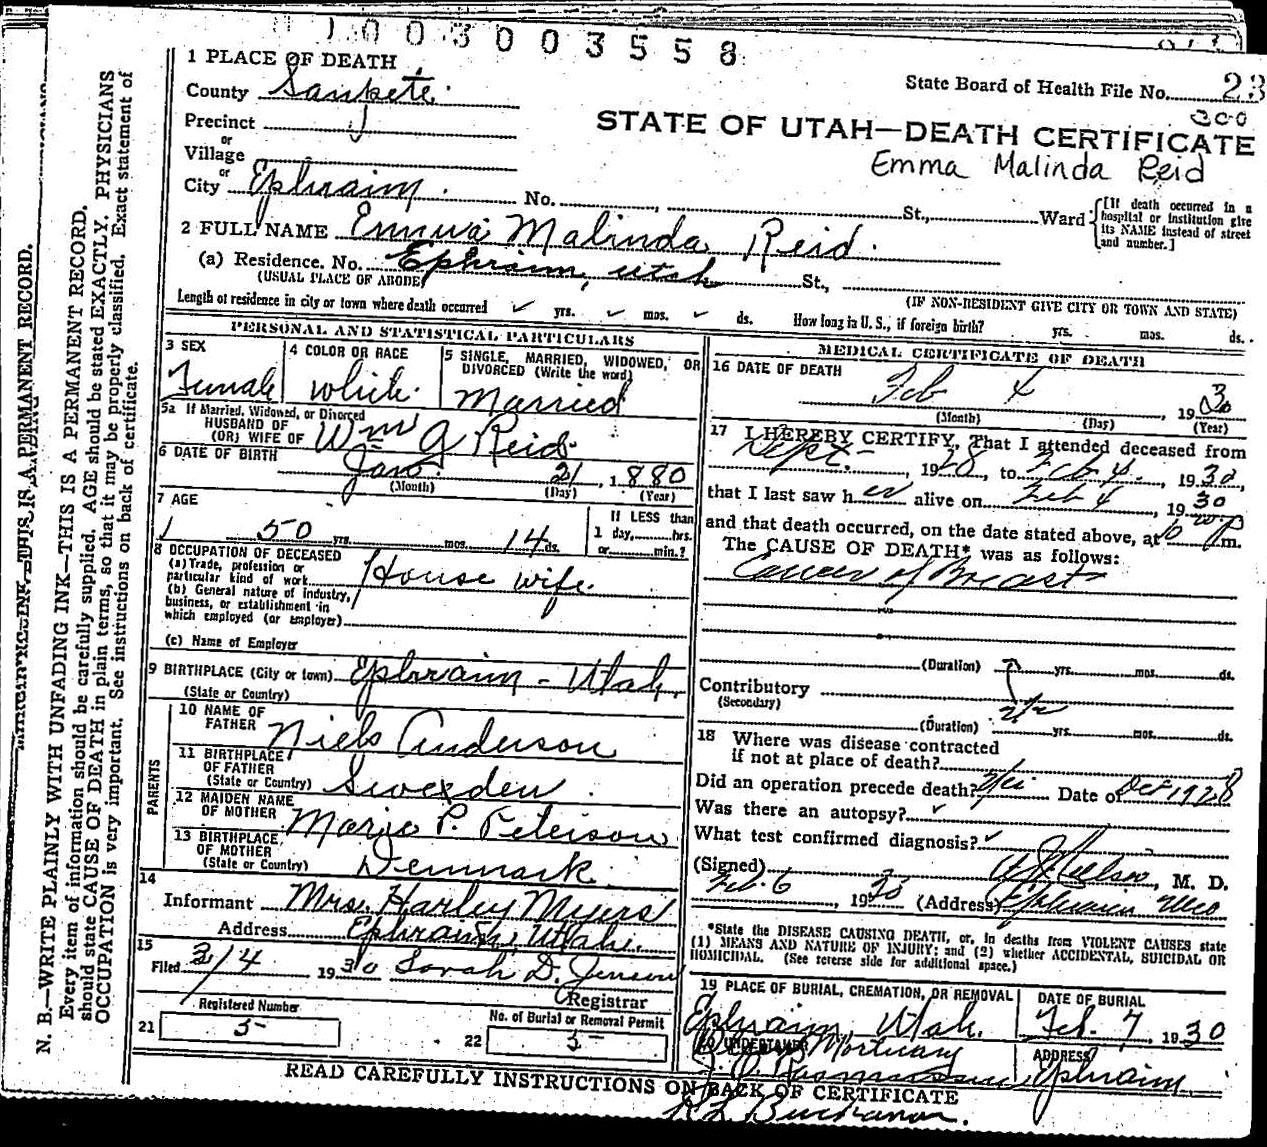 1003003558
1 PLACE OF DEATH
State Board of Health File No. 23
300
County Sanpete
STATE OF UTAH—DEATH CERTIFICATE
Precinct
Emma Malinda Reid
or
Village
or
City Ephraim No. St., Ward
[If death occurred in a hospital or institution give its NAME instead of street and number.]
2 FULL NAME Emma Malinda Reid.
(a) Residence. No. Ephraim, Utah St.,
(USUAL PLACE OF ABODE)
(IF NON-RESIDENT GIVE CITY OR TOWN AND STATE)
Length of residence in city or town where death occurred ✓ yrs. ✓ mos. ✓ ds. How long in U. S., if foreign birth? yrs. mos. ds.
PERSONAL AND STATISTICAL PARTICULARS
3 SEX
Female
4 COLOR OR RACE
White.
5 SINGLE, MARRIED, WIDOWED, OR DIVORCED (Write the word)
Married
5a If Married, Widowed, or Divorced
HUSBAND OF
(OR) WIFE OF Wm G Reid.
6 DATE OF BIRTH Jan. 21, 1880
(Month) (Day) (Year)
7 AGE
50 yrs. mos. 14 ds.
If LESS than
1 day, hrs.
or min.?
8 OCCUPATION OF DECEASED
(a) Trade, profession or particular kind of work House wife.
(b) General nature of industry, business, or establishment in which employed (or employer)
(c) Name of Employer
9 BIRTHPLACE (City or town) Ephraim - Utah.
(State or Country)
PARENTS
10 NAME OF FATHER Niels Anderson
11 BIRTHPLACE OF FATHER Swexden.
(State or Country)
12 MAIDEN NAME OF MOTHER Marie P. Peterson
13 BIRTHPLACE OF MOTHER Denmark.
(State or Country)
14
Informant Mrs. Harley Myers
Address Ephraim, Utah.
15
Filed 3/4 1930 Sorah D. Jensen
Registrar
Registered Number
21 5
No. of Burial or Removal Permit
22 5
MEDICAL CERTIFICATE OF DEATH
16 DATE OF DEATH
Feb 4, 1930
(Month) (Day) (Year)
17 I HEREBY CERTIFY, That I attended deceased from
Sept. , 1928, to Feb 4. , 1930,
that I last saw her alive on Feb 4, 1930
and that death occurred, on the date stated above, at 10 P m.
The CAUSE OF DEATH* was as follows:
Cancer of Breast
(Duration) yrs. mos. ds.
Contributory
(Secondary)
2 1/2
(Duration) yrs. mos. ds.
18 Where was disease contracted
if not at place of death?
Did an operation precede death? Date of Oct 1928
Was there an autopsy? ✓
What test confirmed diagnosis? ✓
(Signed) Nelson, M. D.
Feb. 6, 1930 (Address) Ephraim
*State the DISEASE CAUSING DEATH, or, in deaths from VIOLENT CAUSES state
(1) MEANS AND NATURE OF INJURY; and (2) whether ACCIDENTAL, SUICIDAL OR
HOMICIDAL. (See reverse side for additional space.)
19 PLACE OF BURIAL, CREMATION, OR REMOVAL
Ephraim, Utah.
DATE OF BURIAL
Feb. 7, 1930
20 UNDERTAKER Mortuary
Rasmussen
ADDRESS
Ephraim
READ CAREFULLY INSTRUCTIONS ON BACK OF CERTIFICATE
Buchanan.
N. B.—WRITE PLAINLY WITH UNFADING INK—THIS IS A PERMANENT RECORD.
Every item of information should be carefully supplied. AGE should be stated EXACTLY. PHYSICIANS
should state CAUSE OF DEATH in plain terms, so that it may be properly classified. Exact statement of
OCCUPATION is very important. See instructions on back of certificate.